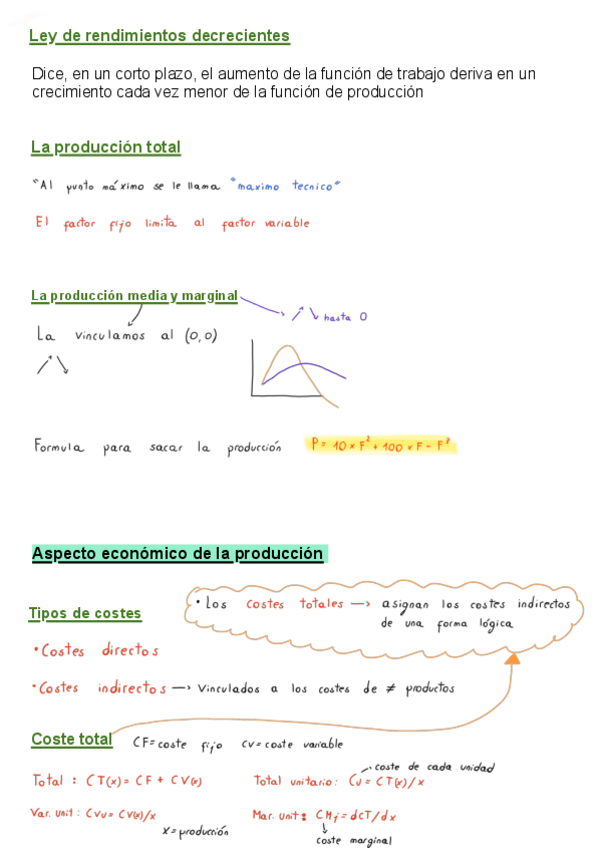 Ley de rendimientos decrecientes
Dice, en un corto plazo, el aumento de la función de trabajo deriva en un
crecimiento cada vez menor de la función de producción
La producción total
"Al punto máximo se le llama "maximo tecnico"
El factor fijo limita al factor variable
La producción media y marginal
hasta 0
La vinculamos al (0,0)
Formula para sacar la producción P = 10 × F² + 100 × F - F³
Aspecto económico de la producción
• Los costes totales → asignan los costes indirectos
de una forma lógica
Tipos de costes
• Costes directos
• Costes indirectos → Vinculados a los costes de ≠ productos
Coste total CF = coste fijo CV = coste variable
coste de cada unidad
Total : CT(x) = CF + CV(x) Total unitario: Cu = CT(x)/x
Var. unit : CVu = CV(x)/x Mar. unit : CMj = dCT/dx
x = producción
coste marginal